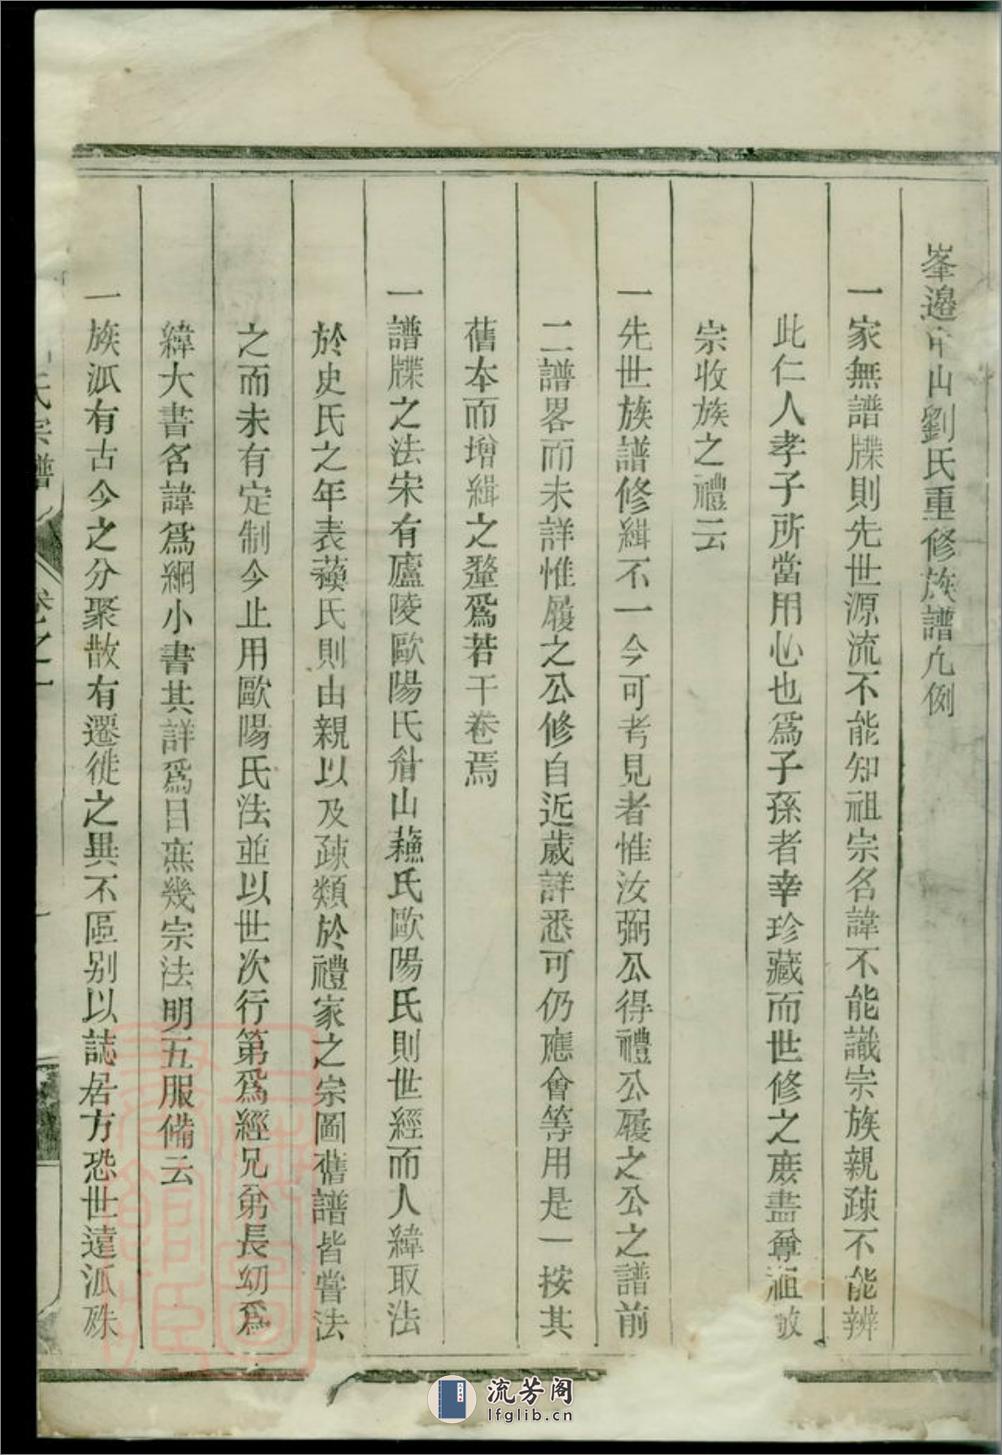 峯邉中山劉氏重修族譜凡例
一家無譜牒則先世源流不能知祖宗名諱不能識宗族親疎不能辨
此仁人孝子所當用心也爲子孫者幸珍藏而世修之庶盡尊祖敬
宗收族之禮云
一先世族譜修緝不一今可考見者惟汝弼公得禮公履之公之譜前
二譜畧而未詳惟履之公修自近歲詳悉可仍應會等用是一按其
舊本而增緝之釐爲若干卷焉
一譜牒之法宋有廬陵歐陽氏眉山蘓氏歐陽氏則世經而人緯取法
於史氏之年表蘓氏則由親以及疎類於禮家之宗圖舊譜皆嘗法
之而未有定制今止用歐陽氏法並以世次行第爲經兄弟長幼爲
緯大書名諱爲綱小書其詳爲目庶幾宗法明五服備云
一族派有古今之分聚散有遷徙之異不區别以誌居方恐世遠派殊
氏宗譜
卷之一
流芳阁
lfglib.cn